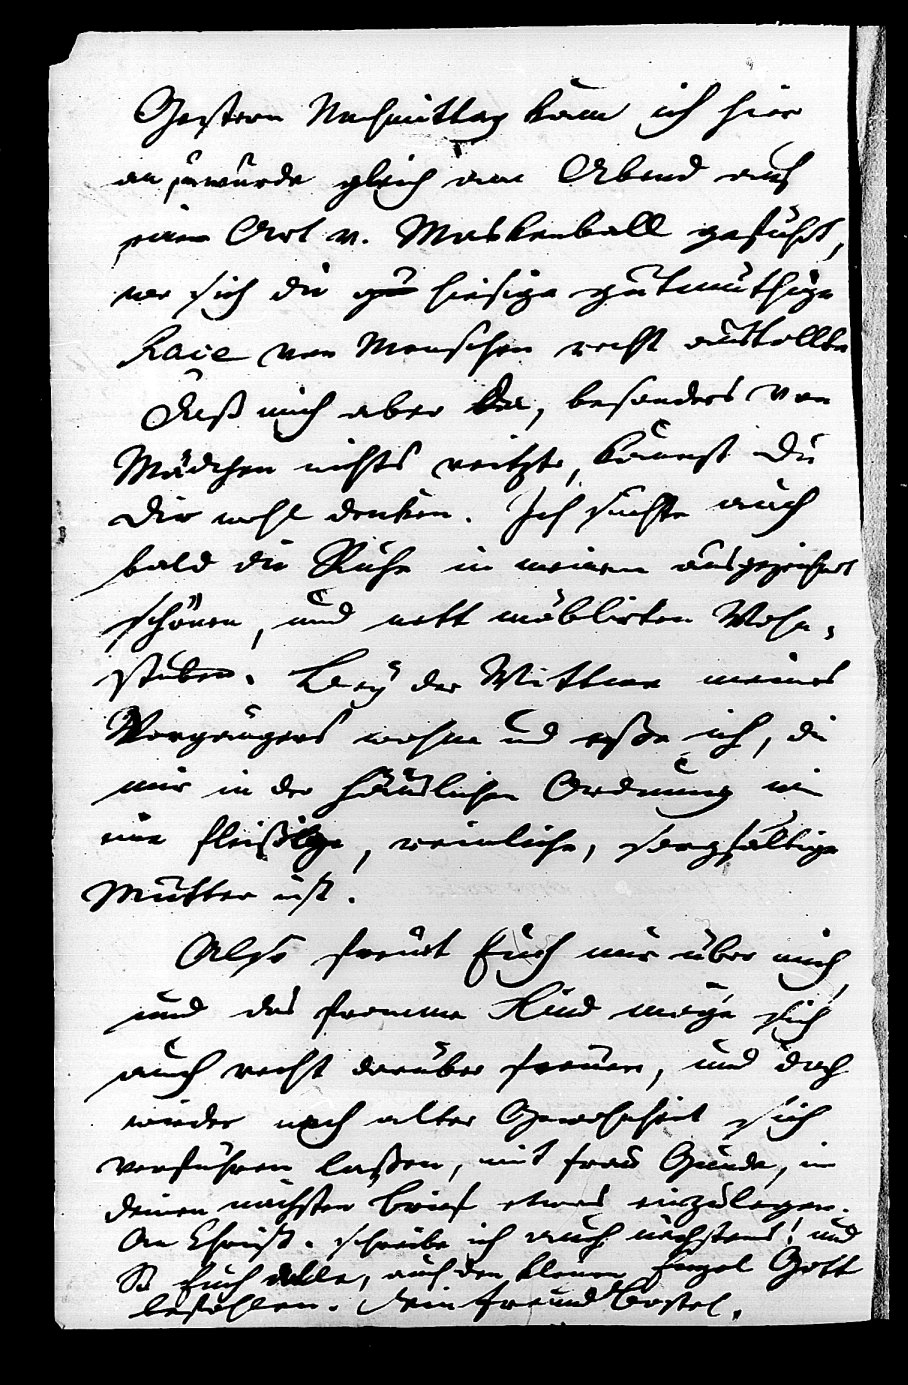 Gestern Nachmittag kam ich hier
an, u wurde gleich am Abend auf
eine Art v. Maskenball geführt,
wo sich die hiesige gutmüthige
Race von Menschen recht austollte
Daß mich aber da, besonders von
Mädchen nichts reitzte, kannst Du
Dir wohl denken. Ich suchte auch
bald die Ruhe in meinen ausgezeichnet
schönen, und nett möblirten Wohn-
stuben. Bey der Wittwe meines
Vorgängers wohne und esse ich, die
mir in der häuslichen Ordnung wie
eine fleißige, reinliche, sorgfältige
Mutter ist.
Also freut Euch nur über mich,
und das fromme Kind möge sich
auch recht darüber freuen, und doch
wieder nach alter Gewohnheit sich
verführen laßen, mit Frau in
deinen nächsten Brief etwas einzulegen.
An Christ. schreibe ich auch nächstens! und
So Euch alle, auch den kleinen Engel Gott
befohlen. Dein Freund